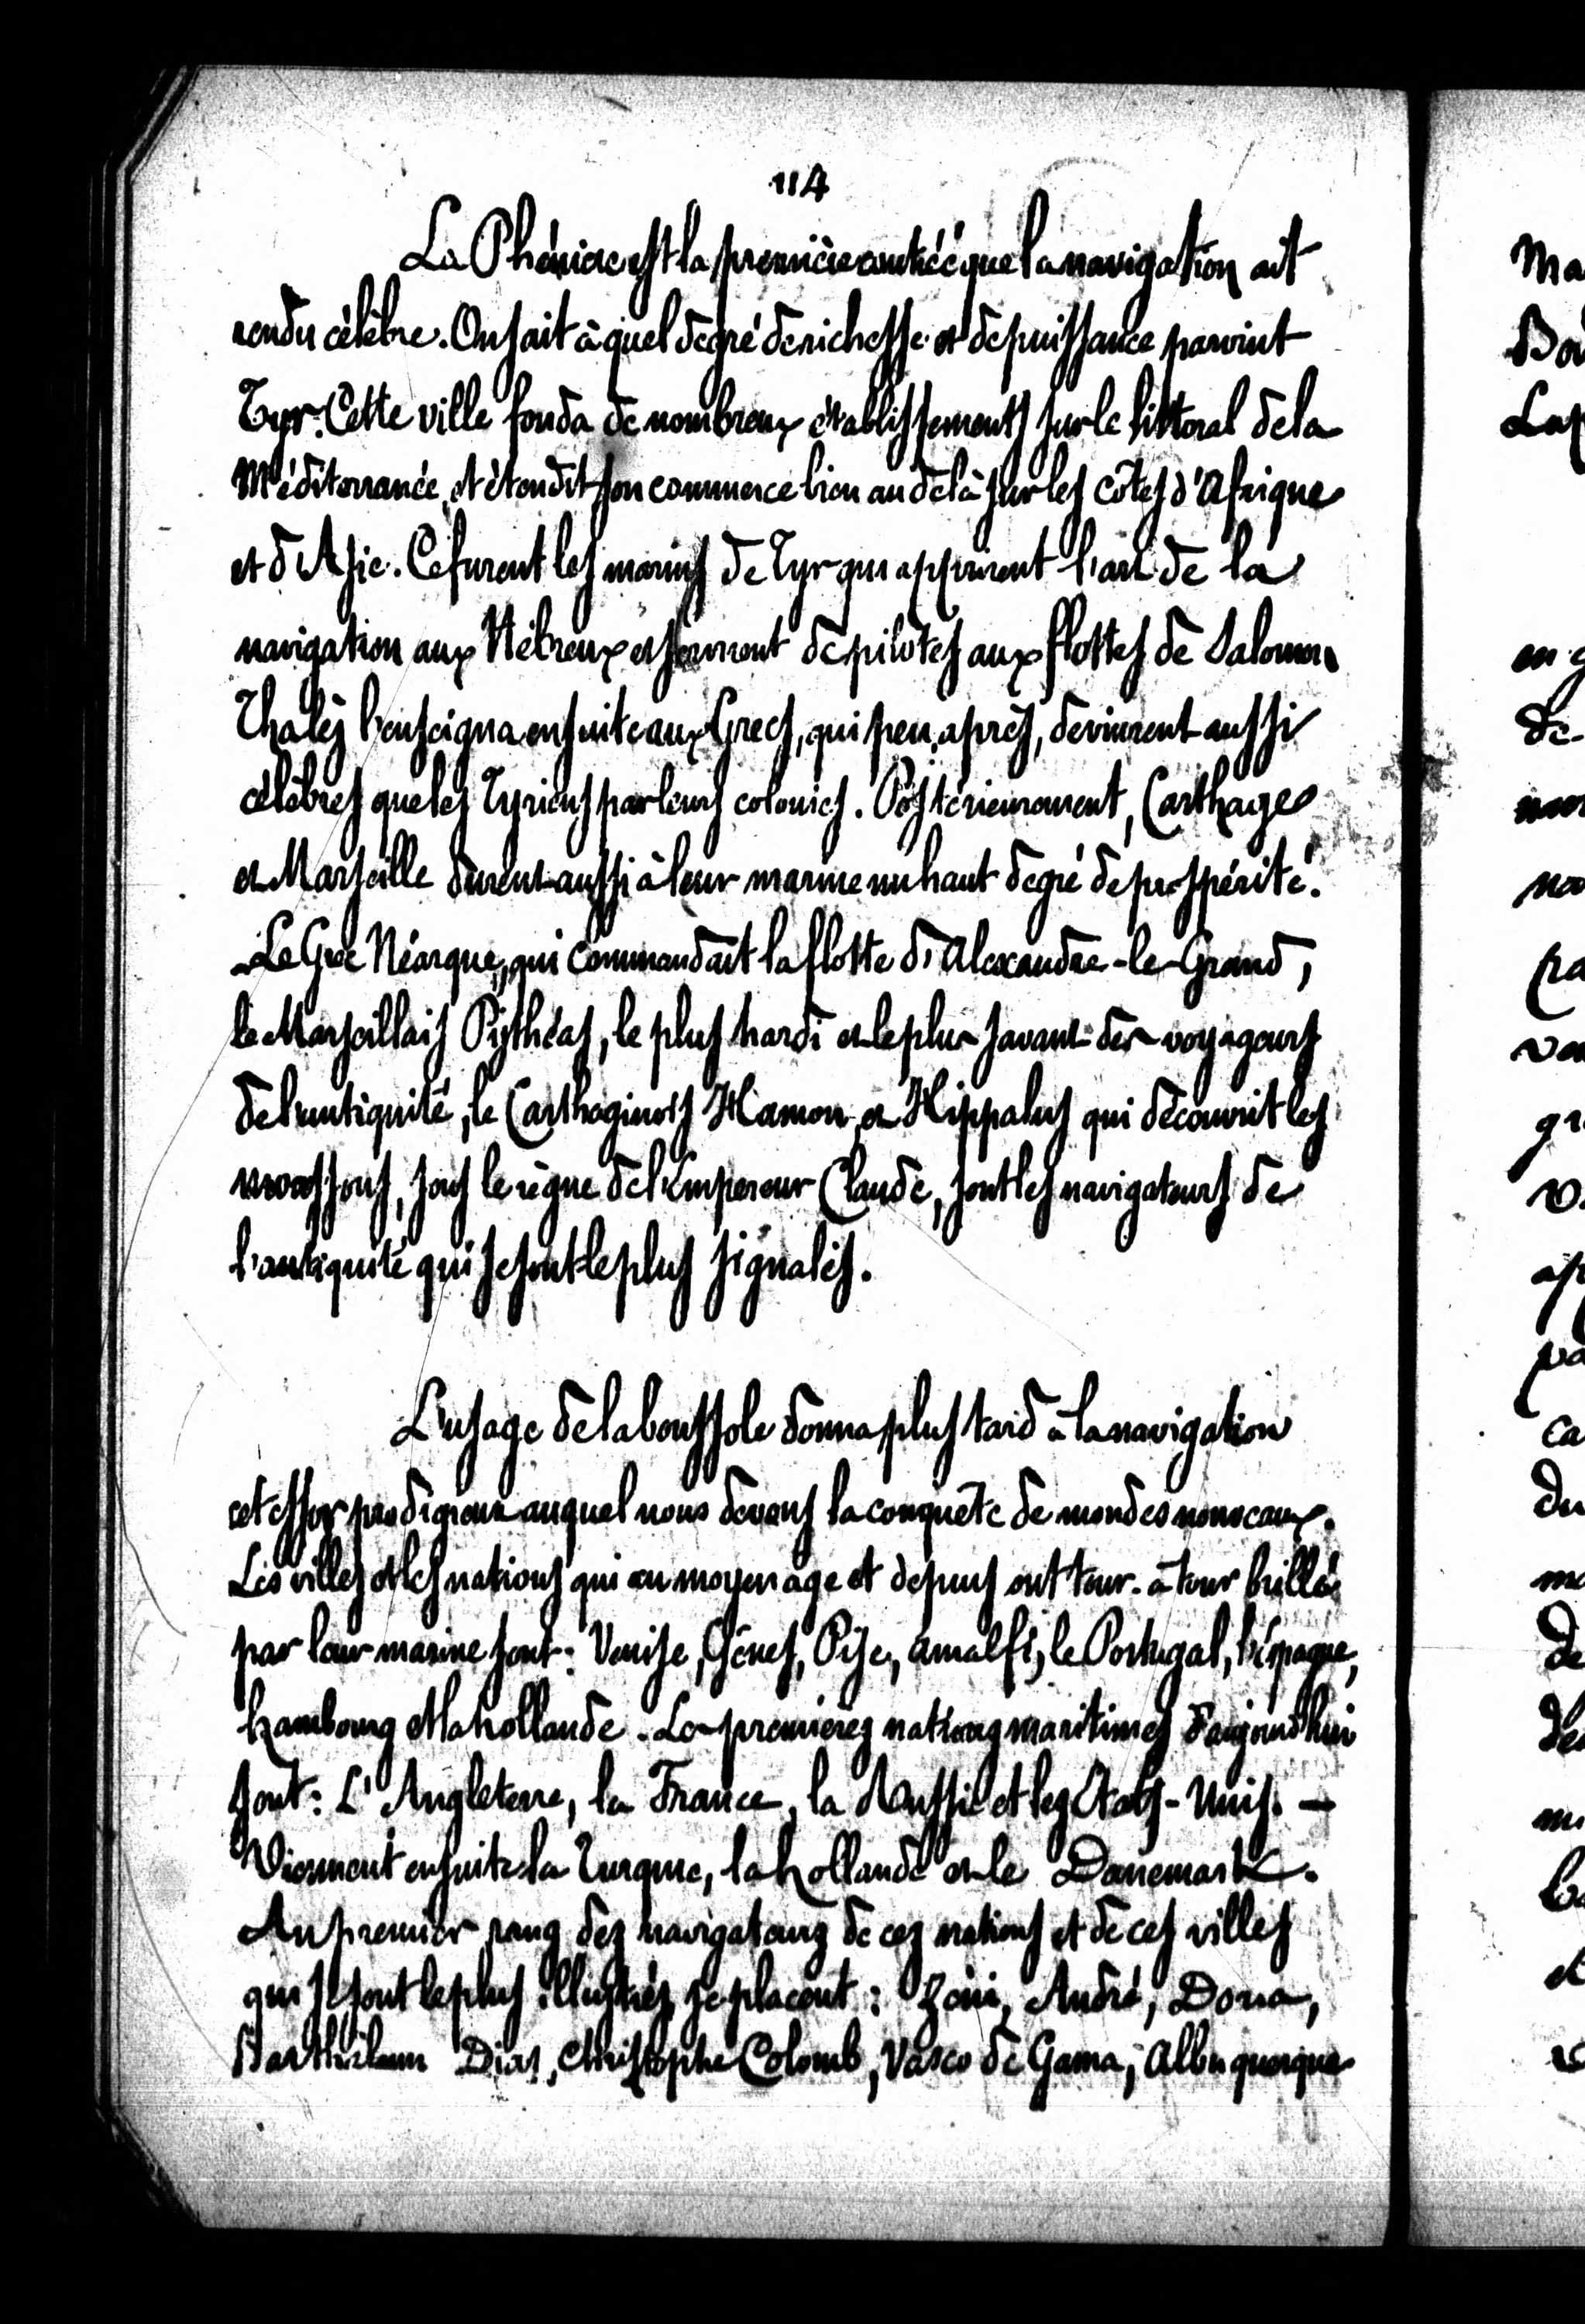 114
La Phénicie est la première contrée que la navigation ait
rendu célèbre. On sait à quel degré de richesse et de puissance parvint
Tyr. Cette ville fonda de nombreux établissements sur le littoral de la
Méditerranée et étendit son commerce bien au delà sur les côtes d'Afrique
et d'Asie. Ce furent les marins de Tyr qui apprirent l'art de la
navigation aux Hébreux et servirent de pilotes aux flottes de Salomon
Thalès l'enseigna ensuite aux Grecs, qui peu après, devinrent aussi
célèbres que les Tyriens par leurs colonies. Postérieurement, Carthage
et Marseille durent aussi à leur marine un haut degré de prospérité.
Le Grec Néarque, qui commandait la flotte d'Alexandre-le-Grand,
le Marseillais Pythéas, le plus hardi et le plus savant des voyageurs
de l'antiquité, le Carthaginois Hamon et Hippalus qui découvrit les
moussons, sous le règne de l'Empereur Claude, sont les navigateurs de
l'antiquité qui se sont le plus signalés.
L'usage de la boussole donna plus tard à la navigation
cet essor prodigieux auquel nous devons la conquête de mondes nouveaux.
Les villes et les nations qui au moyen age et depuis ont tour-à tour brillé
par leur marine sont: Venise, Gênes, Pise, Amalfi, le Portugal, l'Espagne,
hambourg et la hollande. Les premières nations maritimes d'aujourd'hui
sont: L'Angleterre, la France, la Russie et les Etats-Unis. —
Viennent ensuite la Turquie, la hollande et le Danemark.
Au premier rang des navigateurs de ces nations et de ces villes
qui se sont le plus illustrés se placent: Zéni, André, Doria,
Barthélemi Dias, Christophe Colomb, Vasco de Gama, Albuquerque